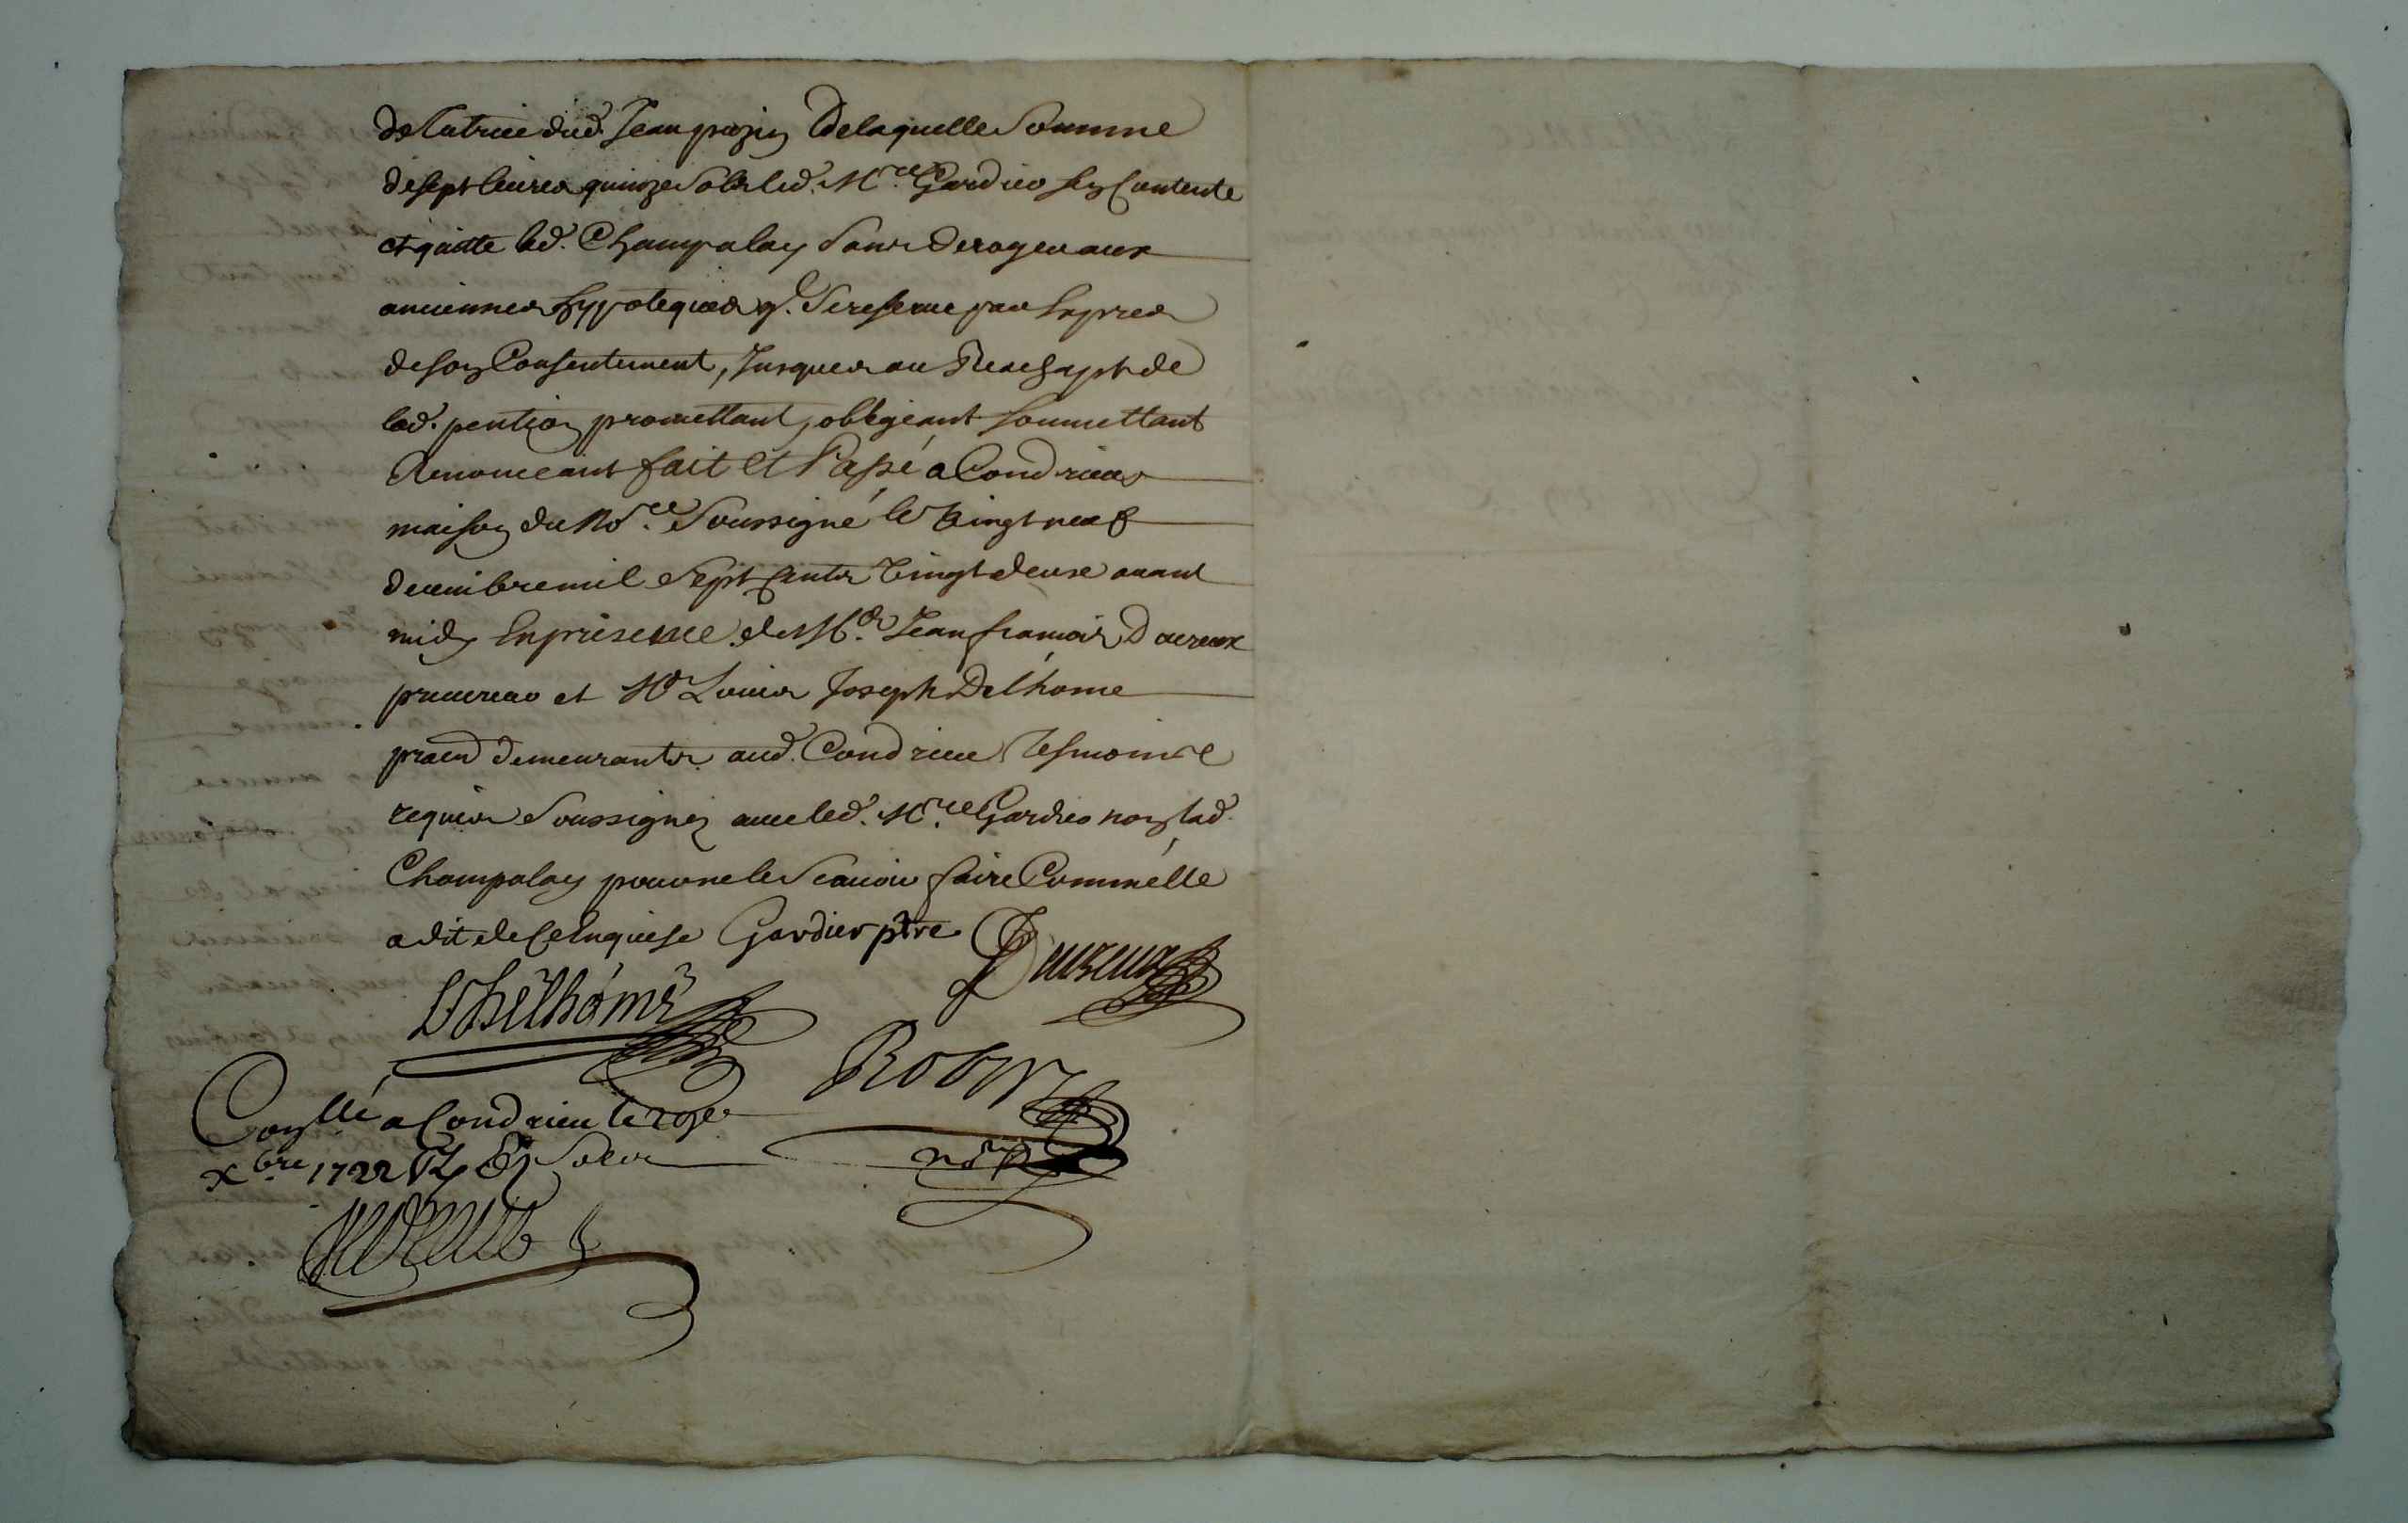 delatrice dud. Jean pozin de laquelle somme
de sept livres quinze sols led. Mre. Gardier sen contente
et quitte lad. Champalay sans deroger aux
anciennes hypoteques ql. se reserve par expres
de son consentement, jusques au reachapt de
lad. pention promettant, obligeant soumettant
renonceant fait et passé a Condrieu
maison du Nore. soussigné le vingt neuf
decembre mil sept cents vingt deux avant
midy en presence de Me. Jean francois Ducreux
procureur et Me Louis Joseph Delhome
praen demeurants aud. Condrieu tesmoins
requis soussignez avec led. Mre. Gardier non lad.
Champalay pour ne le scavoir faire comme elle
a dit de ce enquise Gardier ptre
Ducreux
Dhelhome
Robin
nore
Conllé a Condrieu le 29e
xbre 1722 sols